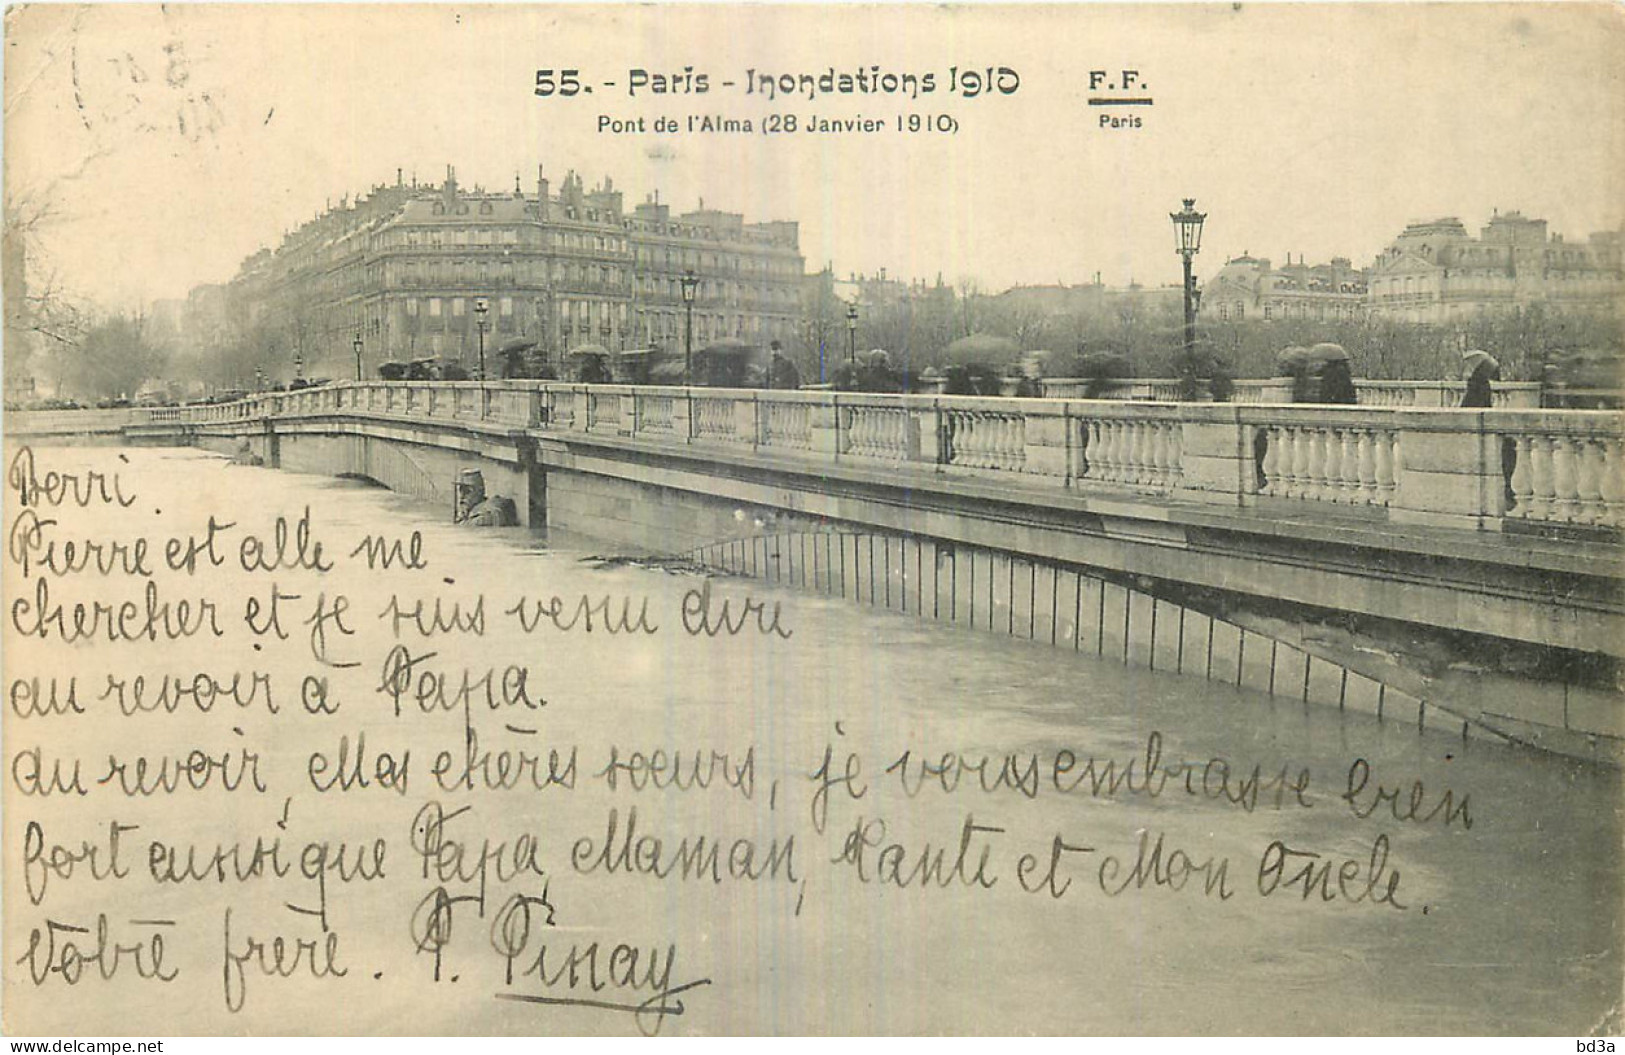 55. - Paris - Inondations 1910
F. F.
Pont de l'Alma (28 Janvier 1910)
Paris
Berri.
Pierre est allé me
chercher et je suis venu dire
au revoir à Papa.
Au revoir, Mes chères sœurs, je vous embrasse bien
fort aussi que Papa, Maman, Tante et Mon Oncle.
Votre frère. P. Pinay
www.delcampe.net
bd3a